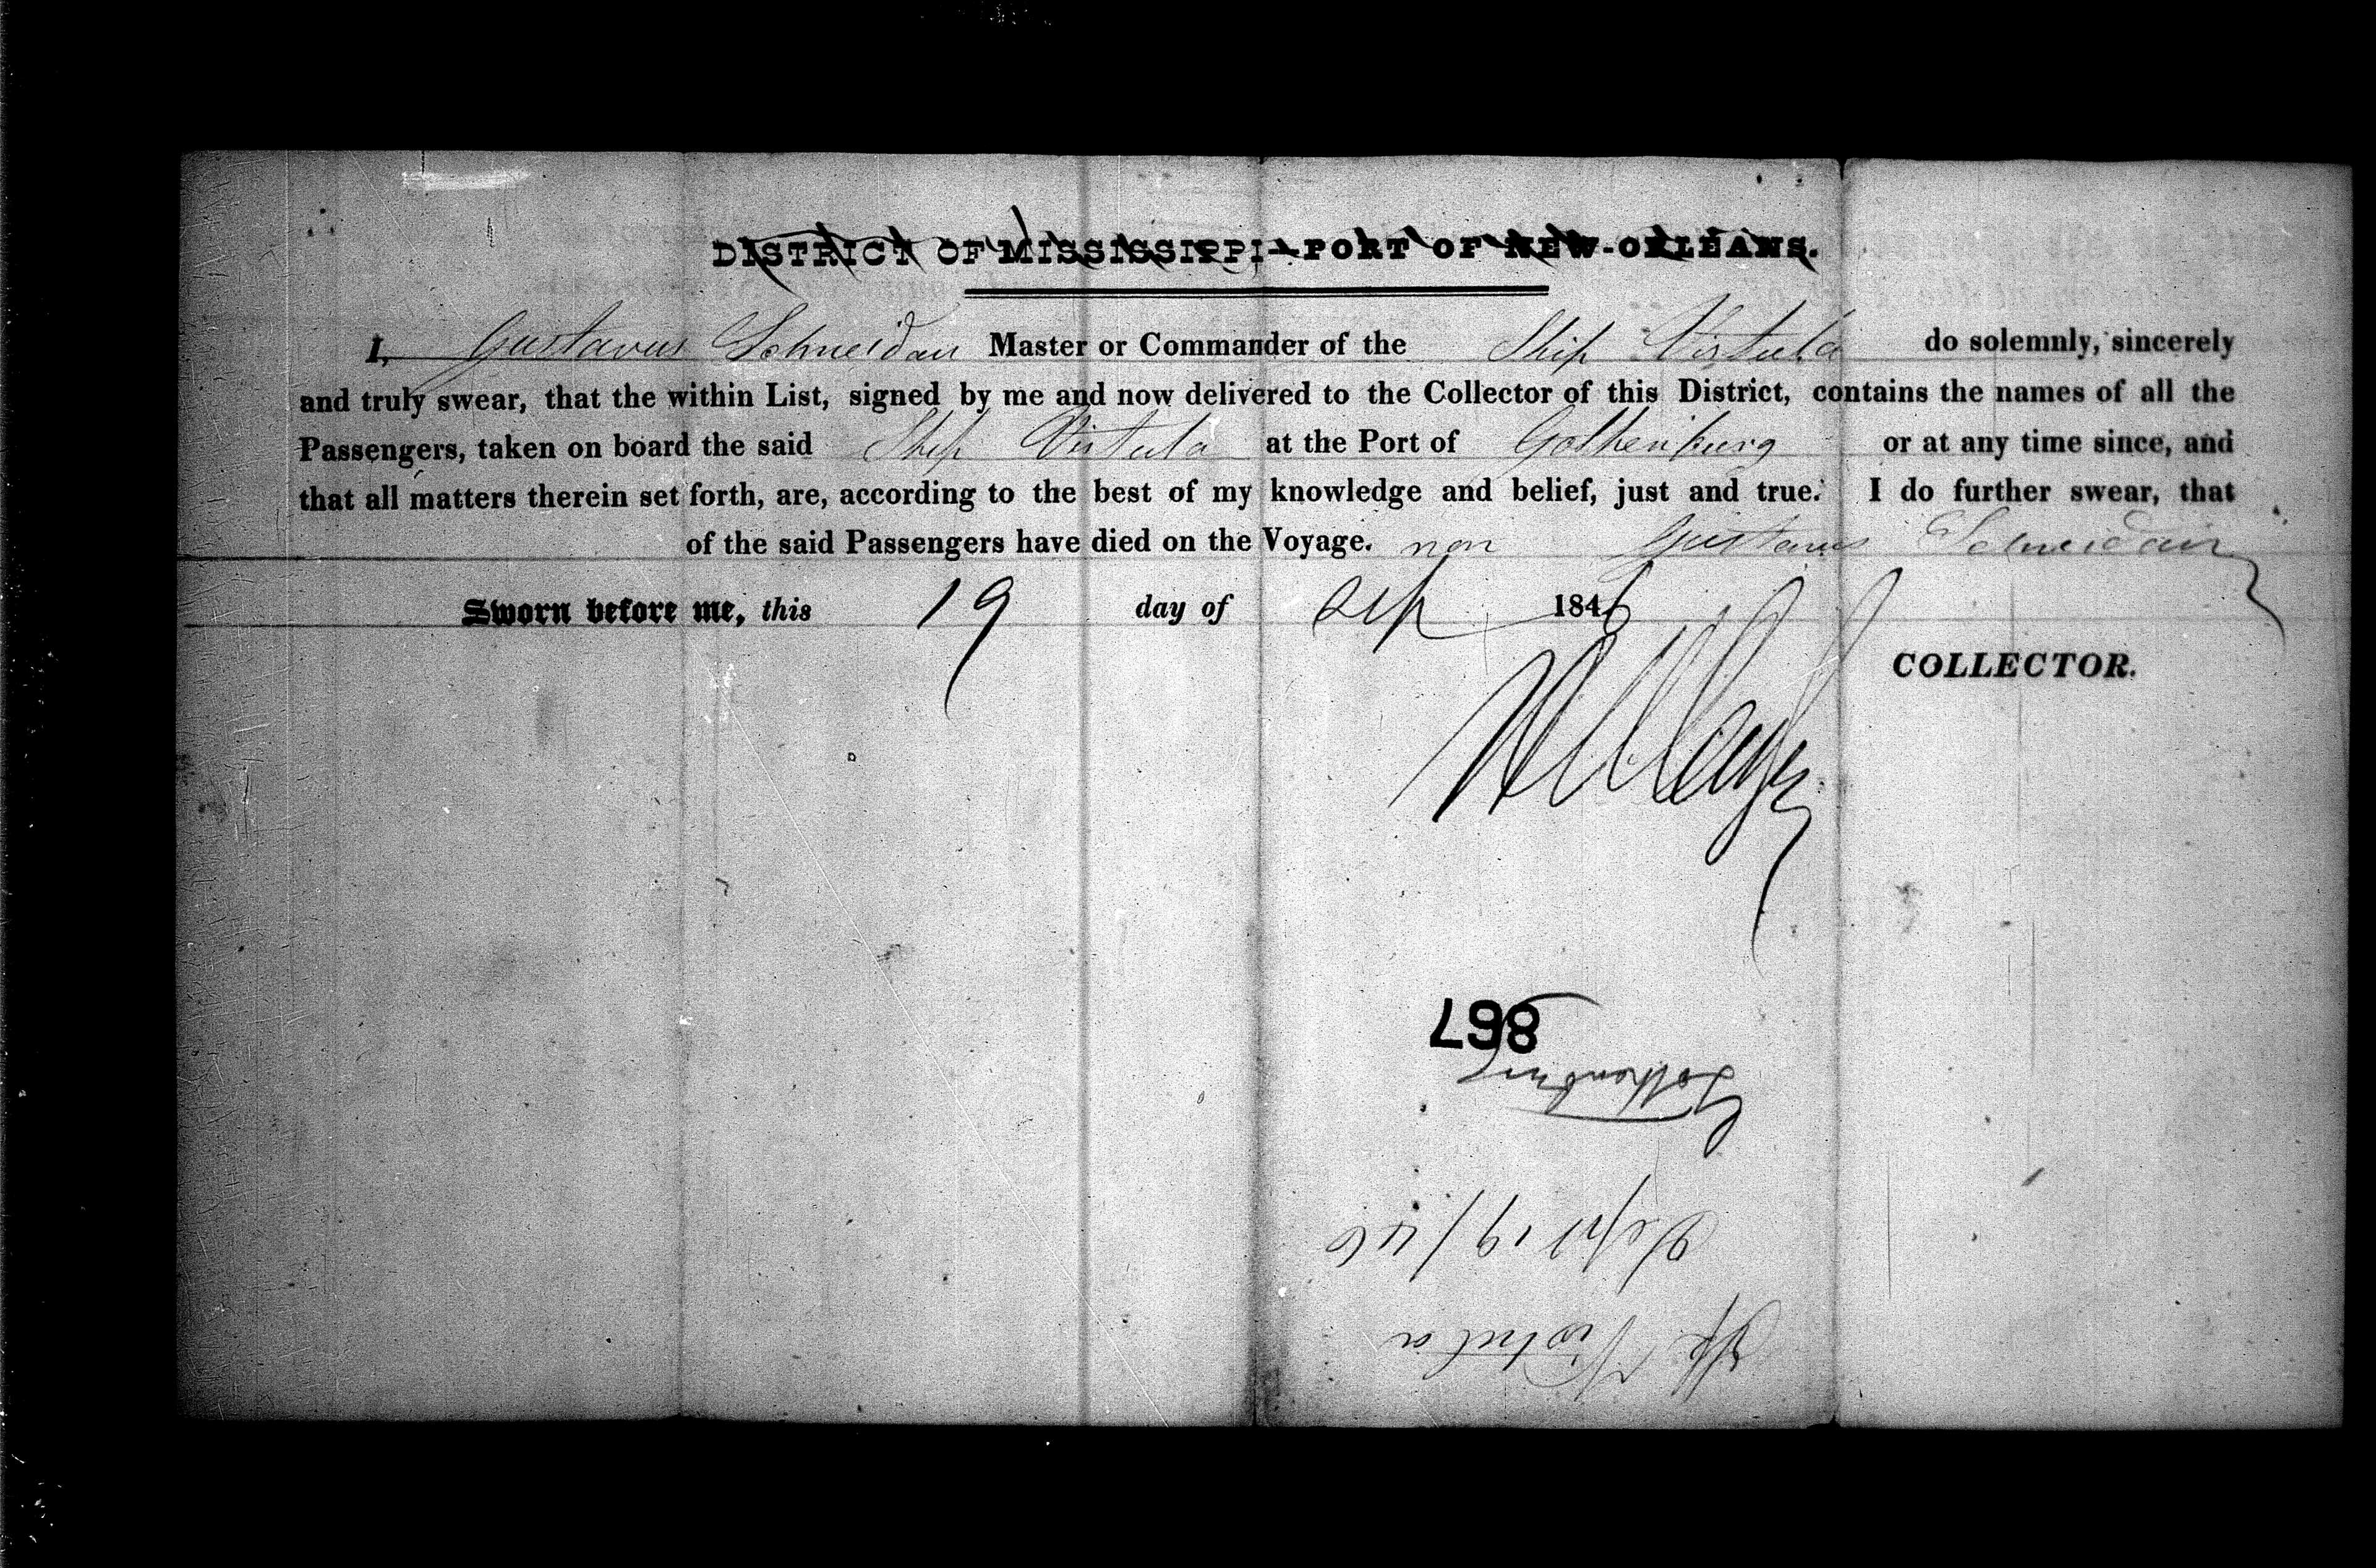 DISTRICT OF MISSISSIPPI—PORT OF NEW-ORLEANS.
I, Gustavus Schneidau Master or Commander of the Ship Vistula do solemnly, sincerely
and truly swear, that the within List, signed by me and now delivered to the Collector of this District, contains the names of all the
Passengers, taken on board the said Ship Vistula at the Port of Gothenburg or at any time since, and
that all matters therein set forth, are, according to the best of my knowledge and belief, just and true. I do further swear, that
of the said Passengers have died on the Voyage. non Gustavus Schneidau
Sworn before me, this 19 day of Sep 1846
COLLECTOR.
867
Gothenburg
Sept 19/46
Vistula